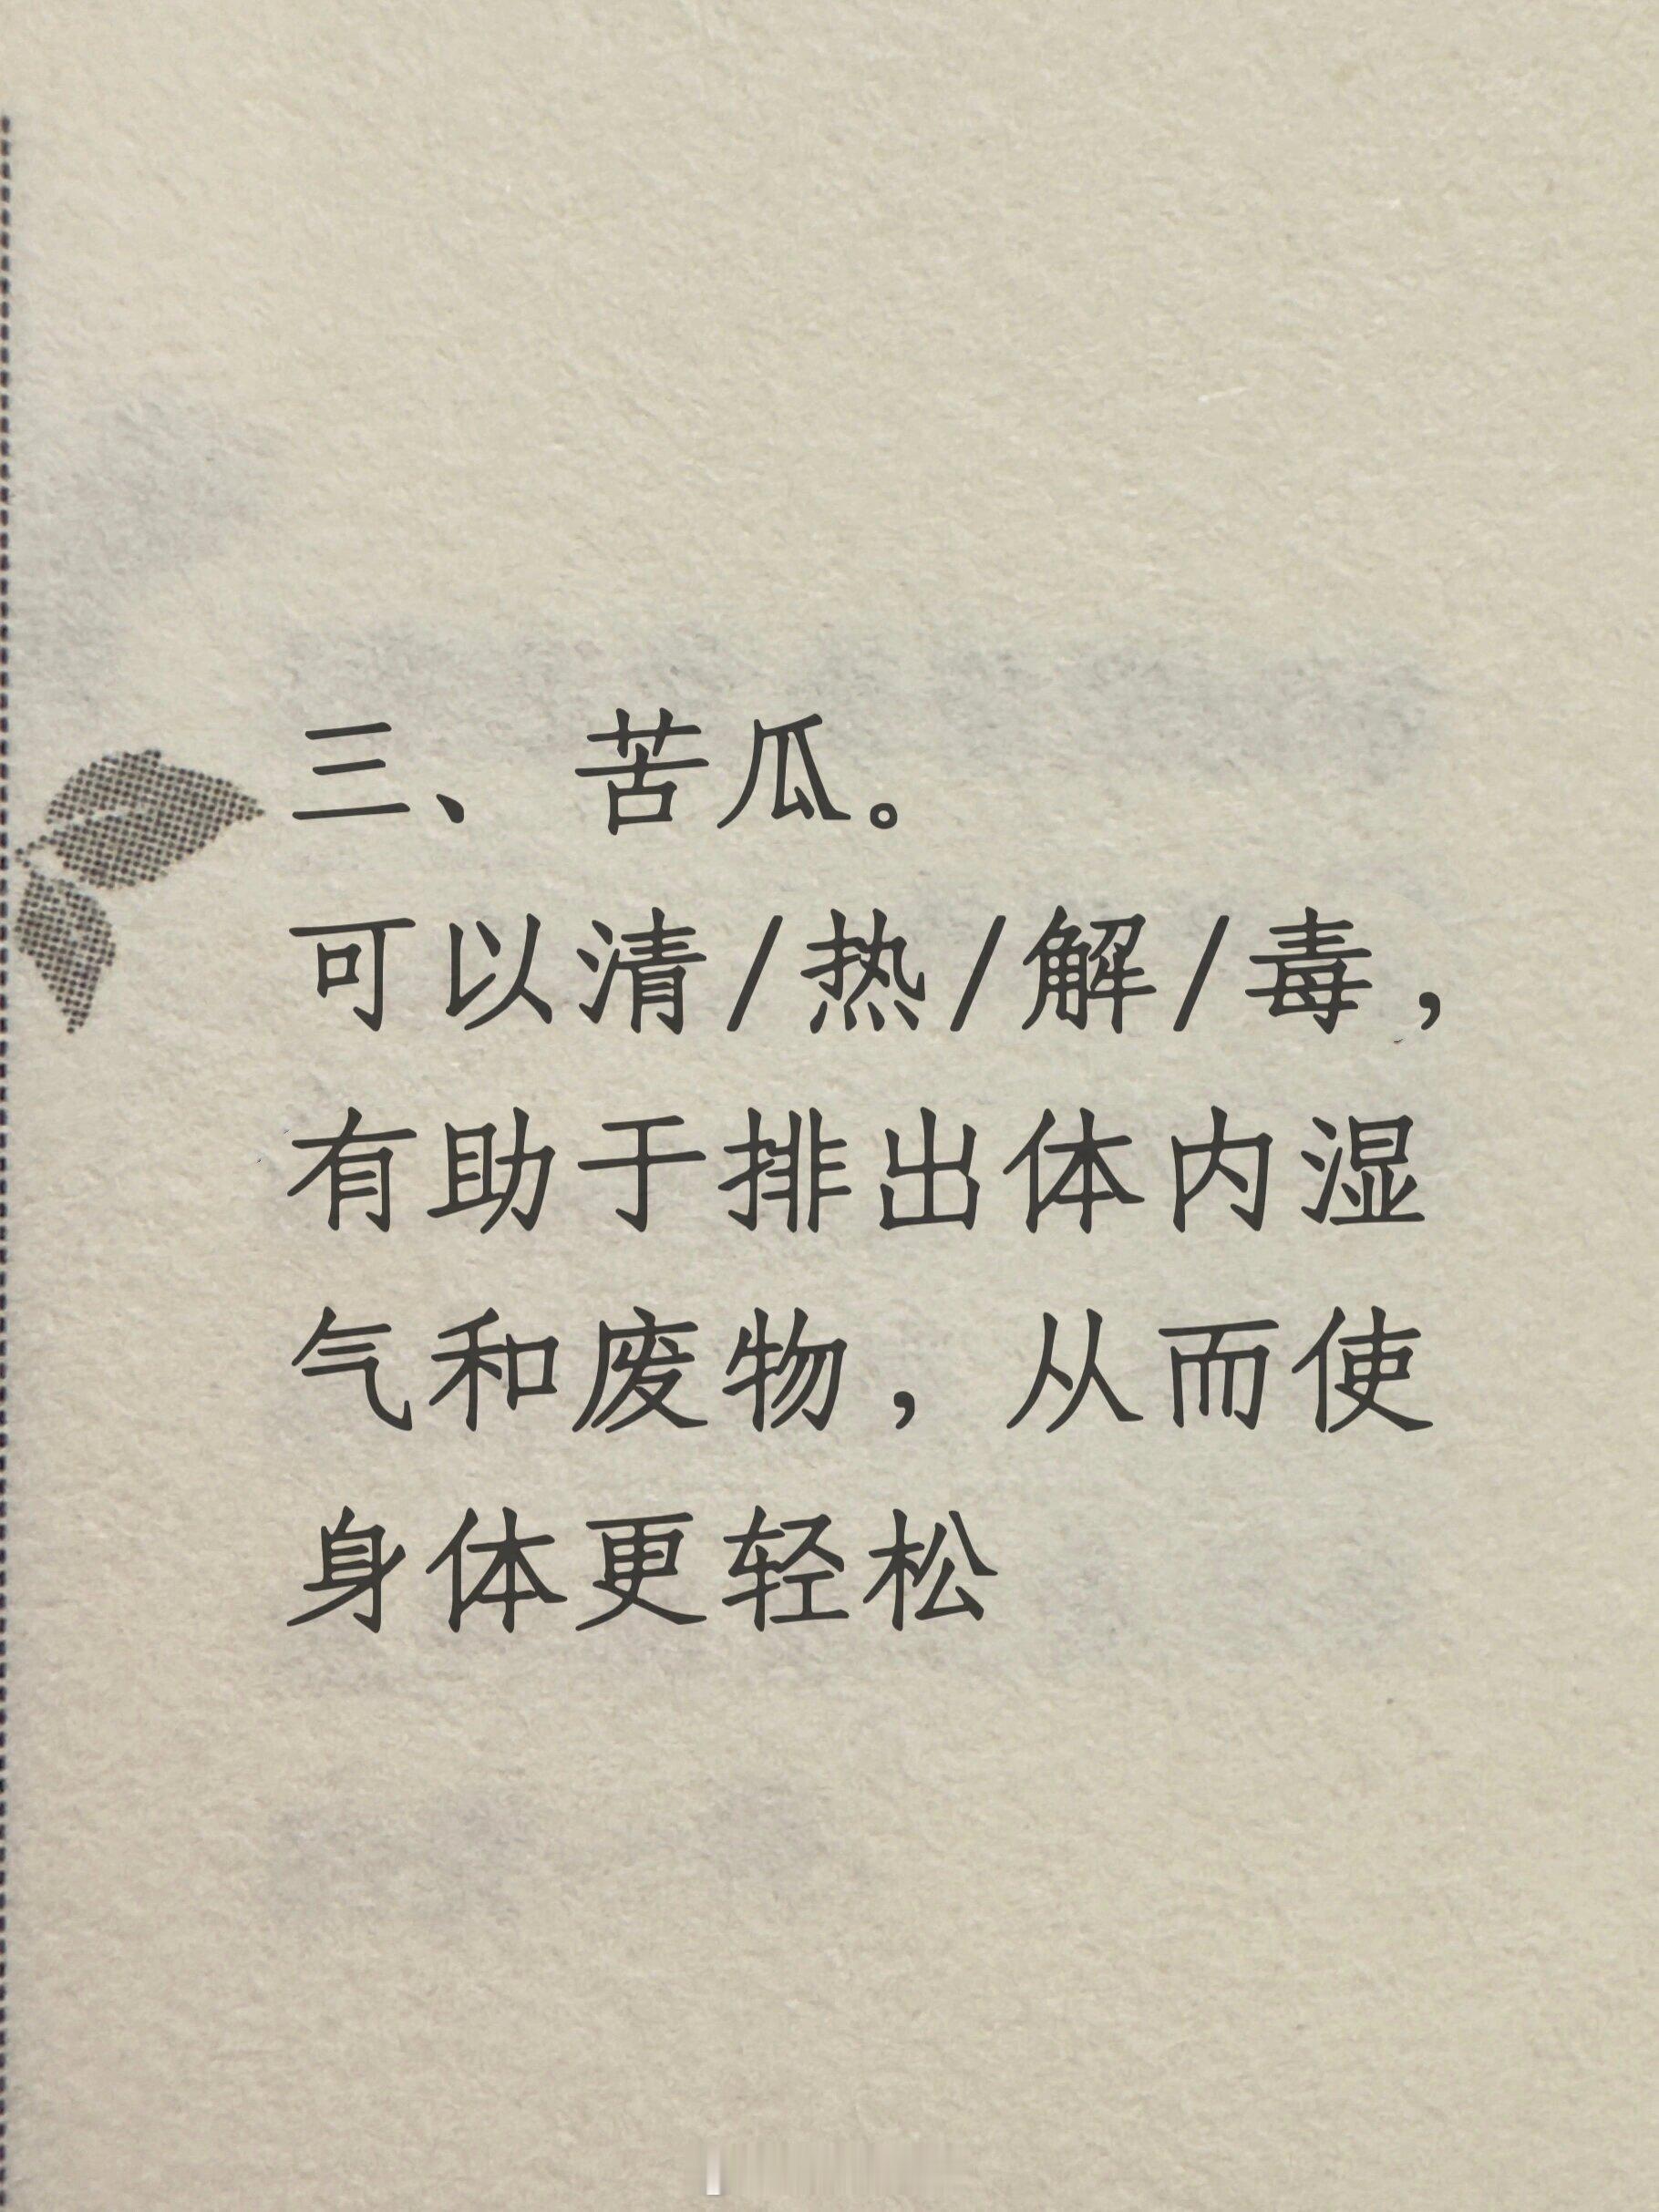 三、苦瓜。
可以清/热/解/毒，
有助于排出体内湿
气和废物，从而使
身体更轻松